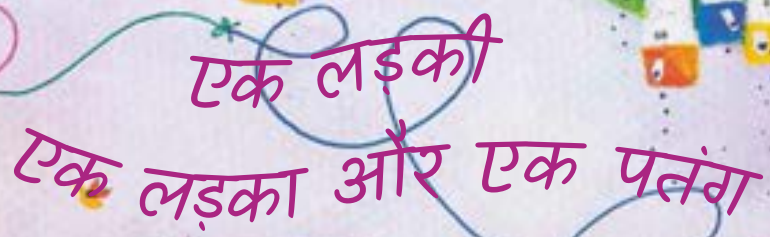 एक लड़की
एक लड़का और एक पतंग